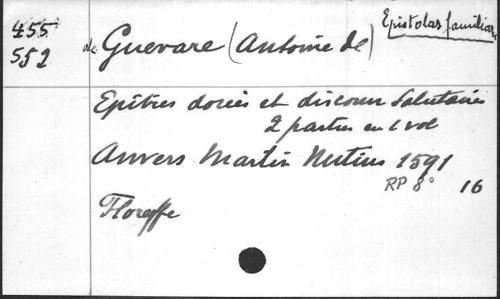 455
552
de Guevare (Antoine de)
Epistolas familiar
Epîtres dorées et discours Salutaires
2 parties en 1 vol
Anvers Martin Nutius 1591
RP 8° 16
Floreffe